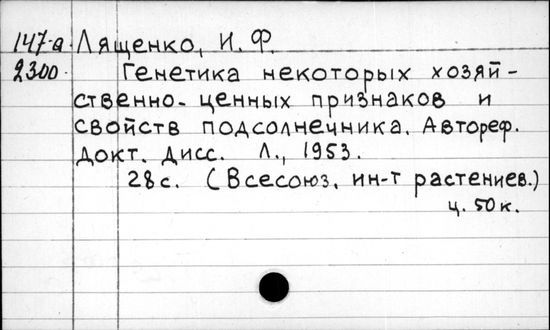 147-а Лященко, И. Ф.
2300 Генетика некоторых хозяй-
ственно-ценных признаков и
свойств подсолнечника. Автореф.
докт. дисс. Л., 1953.
28 с. (Всесоюз. ин-т растениев.)
ц. 50 к.